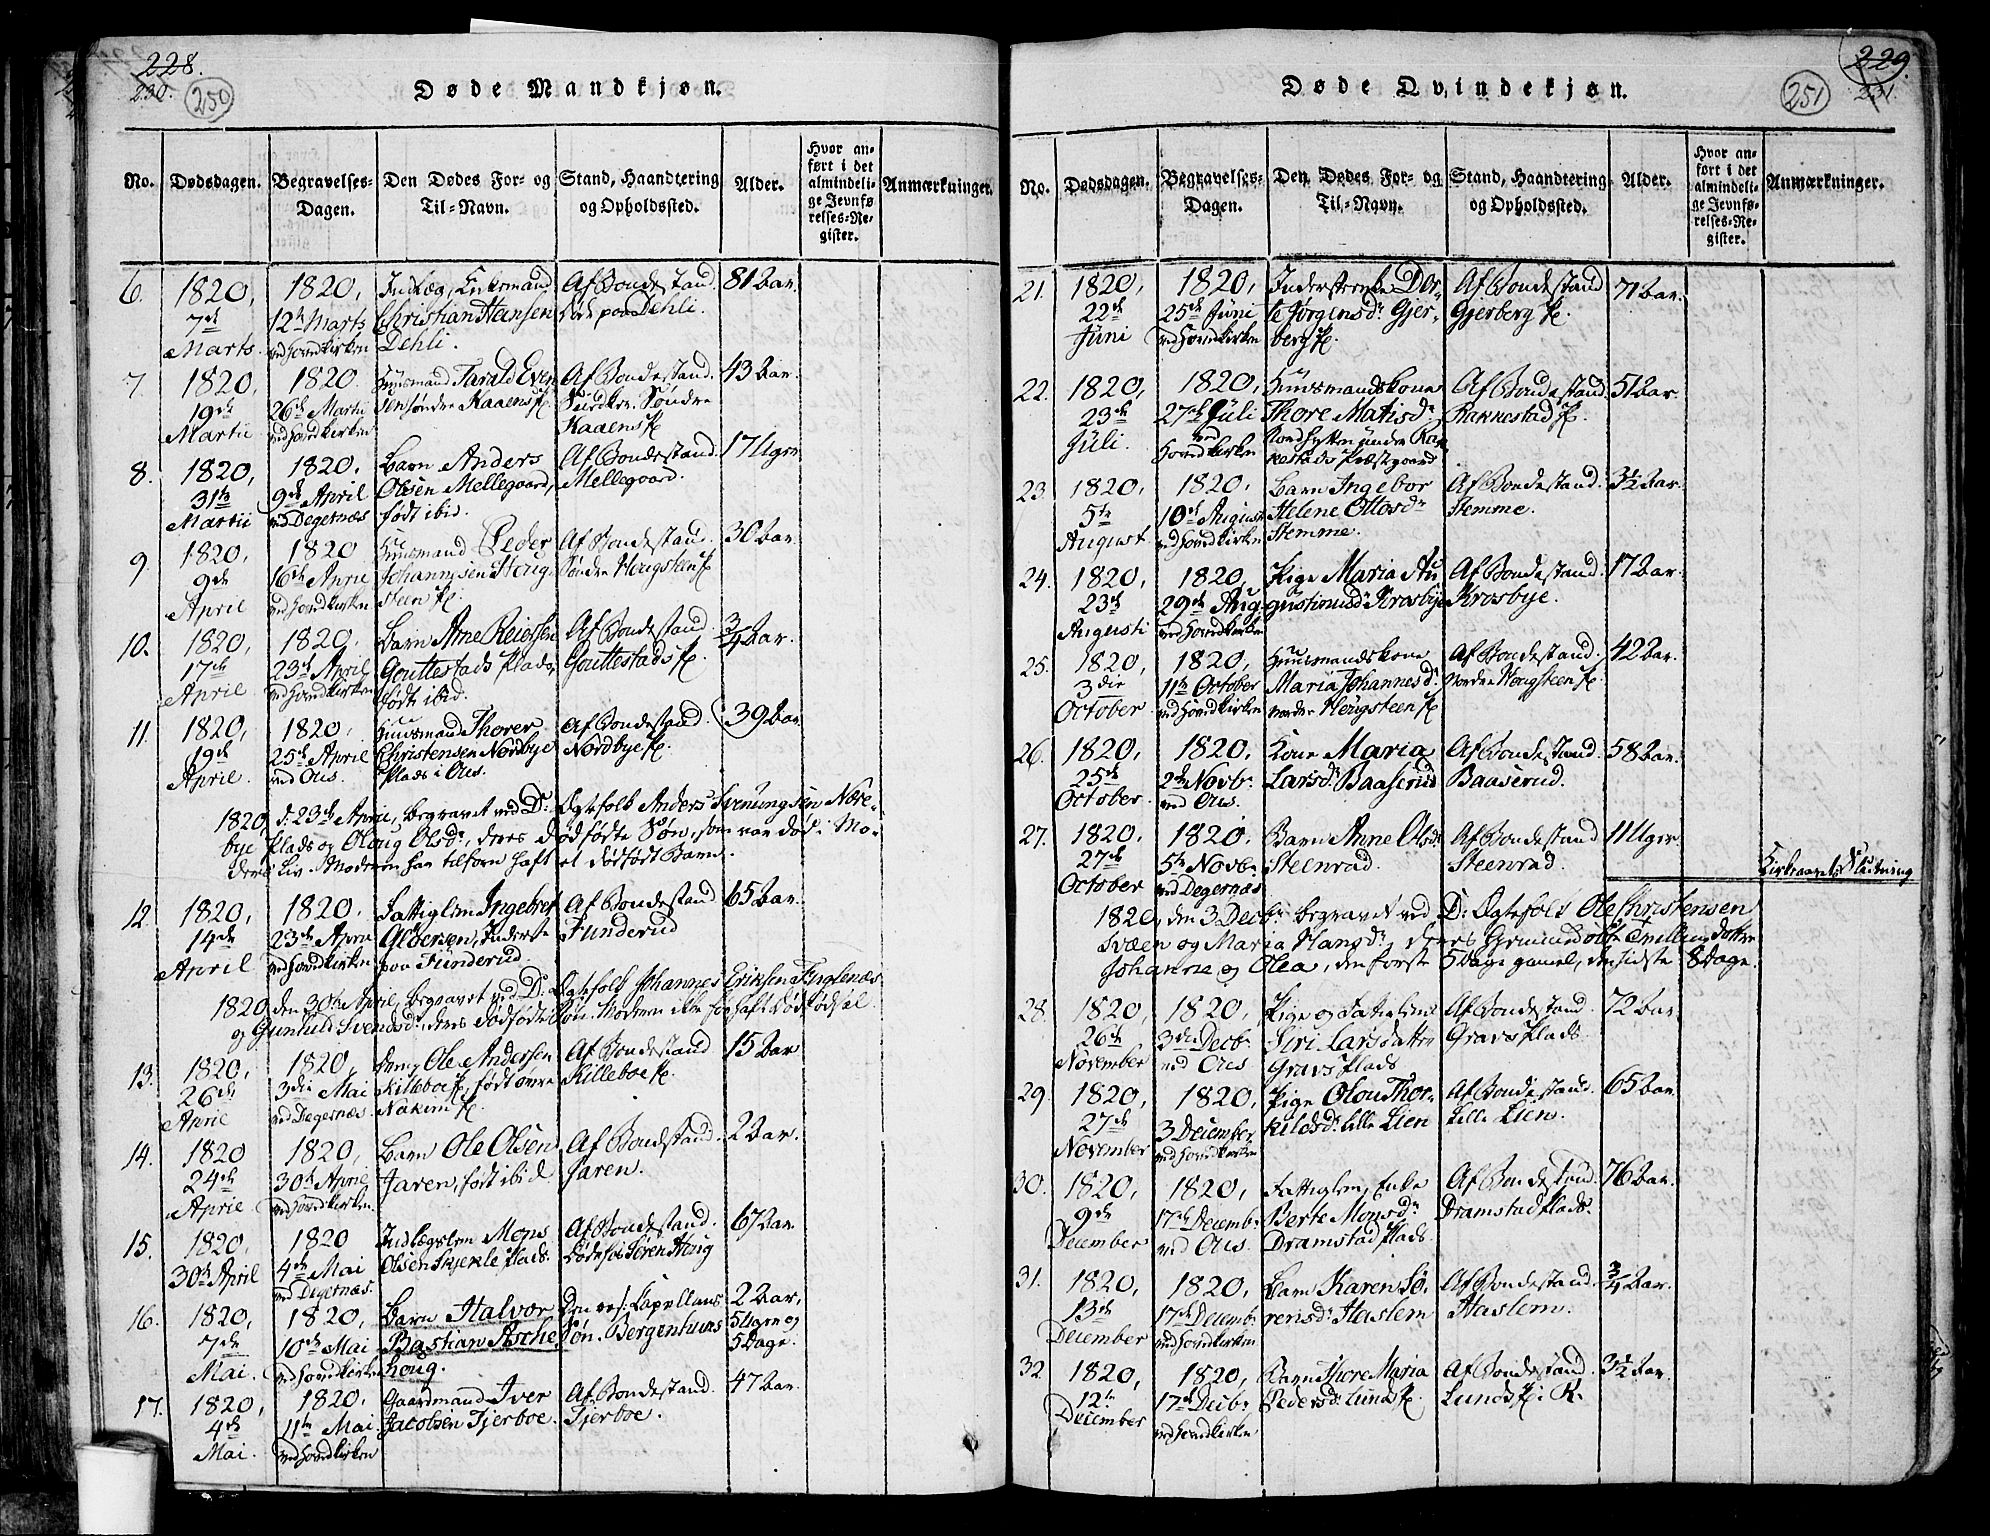 228.
230.
250
Døde Mandkjøn.
No.
Dødsdagen.
Begravelses-
Dagen.
Den Dødes For- og
Til-Navn.
Stand, Haandtering
og Opholdssted.
Alder.
Hvor an-
ført i det
almindeli-
ge Jevnfø-
relses-Re-
gister.
Anmærkninger.
6.
1820,
7de
Marts.
1820,
12te Marts
ved Hovedkirken
Christian Hansen
Dehli.
Af Bondestand.
paa Dehli.
81 Aar.
7.
1820,
19de
Martii
1820.
26de Martii
ved Hovedkirken
Huusmand Tarald Even
sen søndre Kaaens Pl.
Af Bondestand.
Søndre
Kaaens Pl
43 Aar.
8.
1820,
31te
Martii
1820.
9de April
ved Degernæs
Barn Anders
Olsen Mellegaard,
født ibid.
Af Bondestand.
Mellegaard.
17 Uger
9
1820,
9de
April
1820
16de April
ved Hovedkirken
Huusmand Peder
Johannesen Houg-
steen Pl.
Af Bondestand.
Søndre Hougsteen Pl
30 Aar.
10.
1820,
17de
April
1820.
23de April
ved Hovedkirken
Barn Arne Reiersen
Gouttestads Plads,
født ibid.
Af Bondestand.
Gouttestads Pl.
3/4 Aar.
11.
1820,
19de
April.
1820.
25de April
ved Ous.
Huusmand Thorer
Christensen Nordbye
Plads i Ous.
Af Bondestand.
Nordbye Pl.
39 Aar
1820, d. 23de April, begravet ved D: Ægtefolk Anders Svenungsen Nore-
bye Plads og Oloug Olsdr, deres dødfødte Søn, som var død i Mo-
ders Liv. Moderen har tilforn haft et dødfødt Barn.
12.
1820,
14de
April
1820.
23de April
ved Hovedkirken
Fattiglem Ingebret
paa Funderud.
Af Bondestand
Funderud
65 Aar.
1820, den 30te April, begravet ved D: Ægtefolk Johannes Eriksen Fuglenæs
og Gunhild Svendsdr, deres dødfødte Søn. Moderen ikke før haft Dødfødsel
13.
1820,
26de
April
1820,
3die Mai
ved Degernæs
Dreng Ole Andersen
Killeboe Pl, født øvre
Nakim Pl.
Af Bondestand
Killeboe Pl.
15 Aar
14.
1820
24de
April
1820,
30te April
ved Hovedkirken.
Barn Ole Olsen
Jaren, født ibid.
Af Bondestand.
Jaren.
2 Aar.
15.
1820.
30te April
1820
4de Mai
ved Degernæs.
Indlægslem Mons
Olsen Skjekle Plads.
Af Bondestand.
Søren Houg
67 Aar.
16.
1820,
7de
Mai.
1820,
10de Mai
ved Hovedkirken
Barn Halvor
Bastian Asche-
houg.
Den res: Capellans
Søn. Bergenhuus
2 Aar,
5 Uger og
5 Dage.
17.
1820,
4de
Mai.
1820.
11te Mai
ved Hovedkirken
Gaardmand Iver
Jacobsen Tjerboe.
Af Bondestand.
Tjerboe.
47 Aar.
229.
231.
251
Døde Qvindekjøn.
No.
Dødsdagen.
Begravelses-
Dagen.
Den Dødes For- og
Til-Navn.
Stand, Haandtering
og Opholdssted.
Alder.
Hvor an-
ført i det
almindeli-
ge Jevnfø-
relses-Re-
gister.
Anmærkninger.
21.
1820,
22de
Juni
1820,
25de Juni
ved Hovedkirken
Inderste Enke Dor-
te Jørgensdr Gjer-
berg Pl.
Af Bondestand
Gjerberg Pl.
71 Aar.
22.
1820,
23de
Juli.
1820,
27de Juli
ved
Hovedkirken
Huusmandskone
Thore Matisdr
under Rak
kestads Præstgaard
Af Bondestand
Rakkestad Pl.
51 Aar.
23.
1820,
5te
August
1820,
10de August
ved Hovedkirken
Barn Ingebor
Helene Ottosdr
Stemme.
Af Bondestand.
Stemme.
3½ Aar.
24.
1820,
23de
Augusti
1820,
29de Aug.
ved Hovedkirken
Pige Maria Au
gustinusdr Krosbye
Af Bondestand.
Krosbye.
17 Aar.
25.
1820,
3die
October
1820,
11te October
ved Hovedkirken
Huusmandskone
Maria Johannesdr
nordre Hougsteen Pl
Af Bondestand.
Nordre Hougsteen Pl.
42 Aar.
26.
1820,
25de
October
1820,
2den Novbr.
ved Ous.
Kone Maria
Larsdr Baaserud
Af Bondestand.
Baaserud.
58 Aar.
27.
1820,
27de
October
1820.
5te Novbr.
ved Degernæs
Barn Anne Olsdr
Steenrad.
Af Bondestand
Steenrad.
11 Uger
Kirkeaarets Slutning
1820, den 3 Decbr. begravet ved D: Ægtefolk Ole Christensen
Svæen og Maria Hansdr, deres hiemmedøbte Tvillingdøttre
Johanne og Olea, den første 5 Dage gamel, den sidste 8 Dage.
28.
1820
26de
November
1820,
3die Decbr.
ved Ous
Pige og Fattiglem
Siri Larsdatter
Gravs Plads
Af Bondestand
Gravs Plads.
72 Aar.
29.
1820,
27de
November
1820,
3 December
ved Hovedkirken
Pige Olou Thor-
kildsdr lille Lien
Af Bondestand.
Lille Lien.
65 Aar
30.
1820,
9de
December
1820,
17de Decembr.
ved Ous.
Fattiglem, Enke
Berte Monsdr
Dramstad Plads.
Af Bondestand.
Dramstad Plads.
76 Aar.
31.
1820,
13de
December
1820,
17de Decembr
ved Hovedkirken
Barn Karen Sø-
rensdr Haslem
Af Bondestand.
Haslem.
3/4 Aar.
32
1820,
12te
December
1820,
17de Decbr
ved Hovedkirken
Barn Thore Maria
Pedersdr Lunds Pl.
Af Bondestand.
Lunds Pl: R.
3½ Aar.